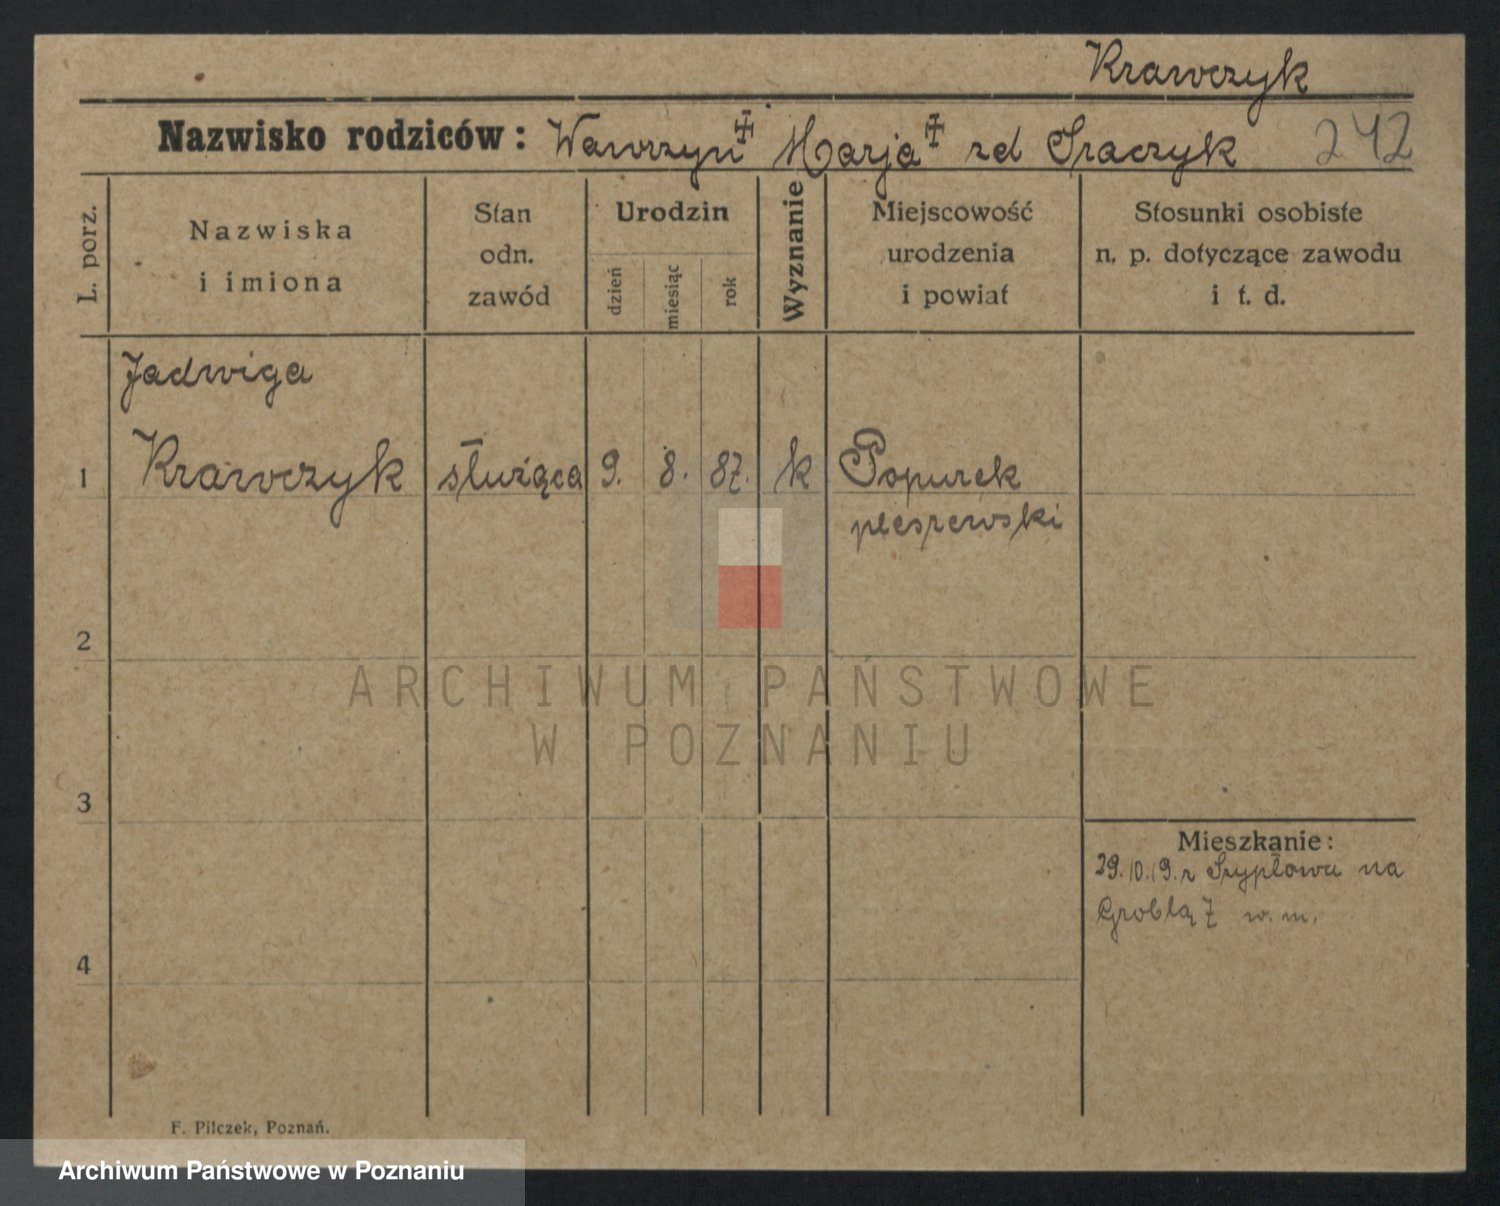 Krawczyk
Nazwisko rodziców: Wawrzyn Marja zd Traczyk 242
L. porz.
Nazwiska i imiona
Stan odn. zawód
Urodzin
dzień
miesiąc
rok
Wyznanie
Miejscowość urodzenia i powiat
Stosunki osobiste n. p. dotyczące zawodu i t. d.
Jadwiga
1 Krawczyk służąca 9. 8. 87. k Popurek
pleszewski
2
ARCHIWUM PAŃSTWOWE
W POZNANIU
3
Mieszkanie:
29.10.19. z Szypłowa na
Groblą 7 w. m.
4
F. Pilczek, Poznań.
Archiwum Państwowe w Poznaniu